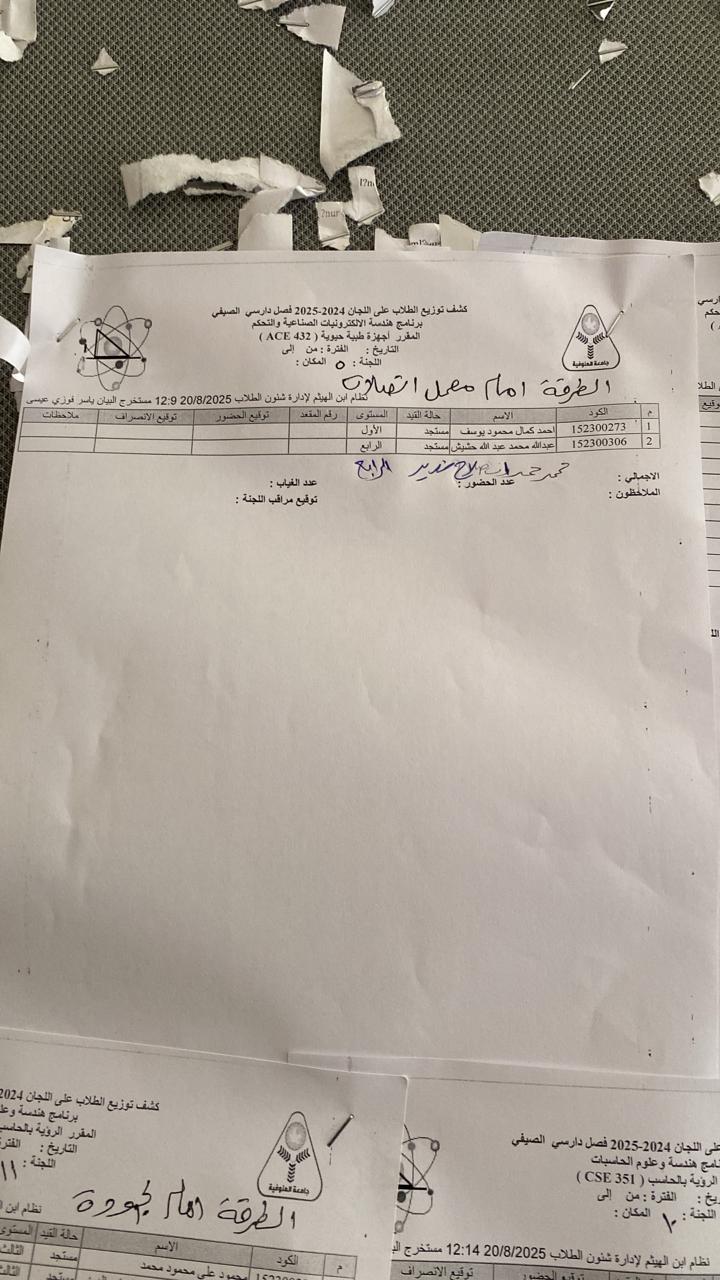 l?m
?nur
كشف توزيع الطلاب على اللجان 2024-2025 فصل دارسي الصيفي
برنامج هندسة الالكترونيات الصناعية والتحكم
المقرر أجهزة طبية حيوية ( ACE 432 )
التاريخ : الفترة : من إلى
اللجنة : ٥ المكان :
جامعة المنوفية
الطرقة امام معمل اتصالات
نظام ابن الهيثم لإدارة شئون الطلاب 20/8/2025 12:9 مستخرج البيان ياسر فوزي عيسى
م الكود الاسم حالة القيد المستوى رقم المقعد توقيع الحضور توقيع الانصراف ملاحظات
1 152300273 احمد كمال محمود يوسف مستجد الأول
2 152300306 عبدالله محمد عبد الله حشيش مستجد الرابع
الرابع
الاجمالي : عدد الحضور : عدد الغياب :
الملاحظون : توقيع مراقب اللجنة :
كشف توزيع الطلاب على اللجان 2024
برنامج هندسة
المقرر الرؤية بالحاسب
التاريخ : الفترة
اللجنة : ١١
جامعة المنوفية
الطرقة امام الجودة
نظام ابن
م الكود الاسم حالة القيد المستوى
محمود علي محمود محمد مستجد
اللجان 2024-2025 فصل دارسي الصيفي
برنامج هندسة وعلوم الحاسبات
الرؤية بالحاسب ( CSE 351 )
الفترة : من إلى
اللجنة : ١٠ المكان :
نظام ابن الهيثم لإدارة شئون الطلاب 20/8/2025 12:14 مستخرج
توقيع الحضور توقيع الانصراف